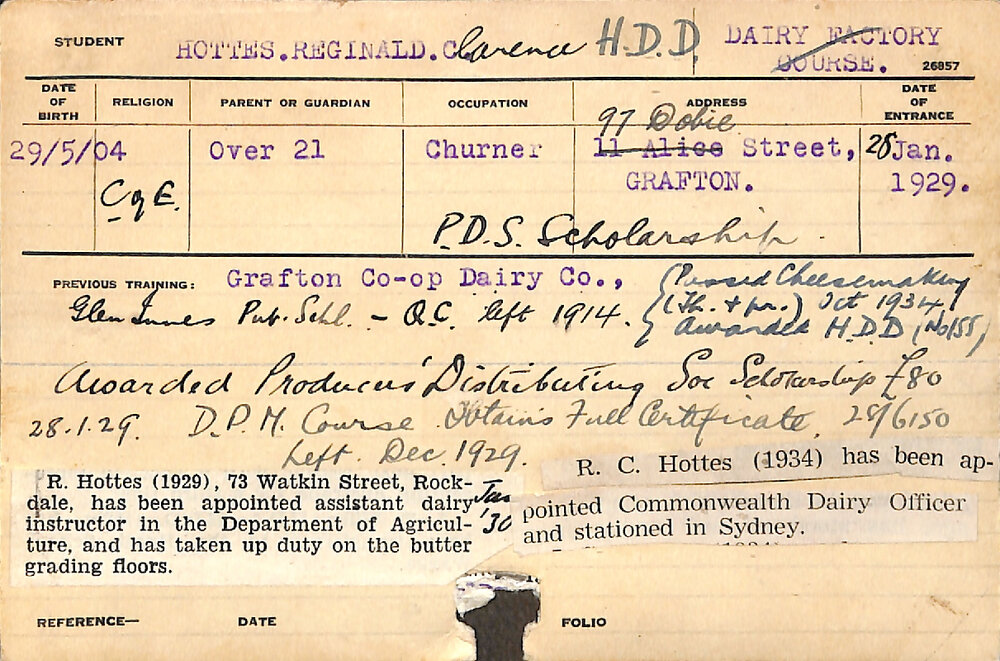 STUDENT HOTTES.REGINALD.Clarence H.D.D DAIRY FACTORY
COURSE. 26857
DATE OF BIRTH RELIGION PARENT OR GUARDIAN OCCUPATION ADDRESS DATE OF ENTRANCE
97 Dobie
29/5/04 Over 21 Churner 11 Alice Street, 28 Jan.
C of E. GRAFTON. 1929.
P.D.S. Scholarship.
PREVIOUS TRAINING: Grafton Co-op Dairy Co.,
Glen Innes Pub. Schl. - Q.C. left 1914.
(Passed Cheesemaking
(Th. + pr.) Oct 1934,
Awarded H.D.D (No 155)
Awarded Producers' Distributing Soc Scholarship £80
28.1.29. D.P.M. Course Obtains Full Certificate.
Left. Dec. 1929.
R. Hottes (1929), 73 Watkin Street, Rock-
dale, has been appointed assistant dairy
instructor in the Department of Agricul-
ture, and has taken up duty on the butter
grading floors.
Jan
'30
R. C. Hottes (1934) has been ap-
pointed Commonwealth Dairy Officer
and stationed in Sydney.
REFERENCE— DATE FOLIO